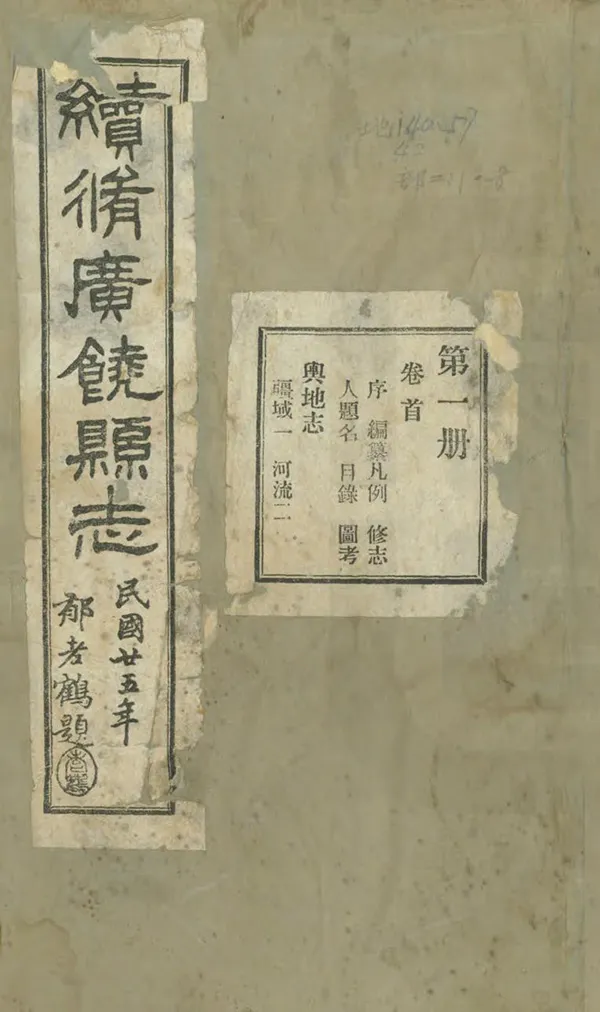 續脩廣饒縣志
民國廿五年
郁老鶴題
第一册
卷首
序 編纂凡例 修志
人題名 目錄 圖考
輿地志
疆域一 河流二